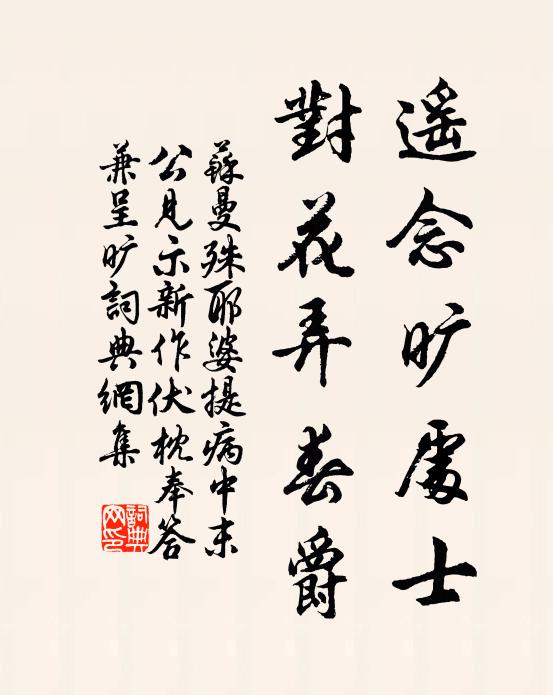 遥念旷處士
對花弄春爵
蘇曼殊耶婆提病中末
公見示新作伏枕奉答
兼呈旷詞典網集
詞典
网印